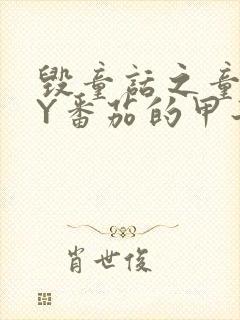 毁童话之童
Y番茄的甲
肖世俊